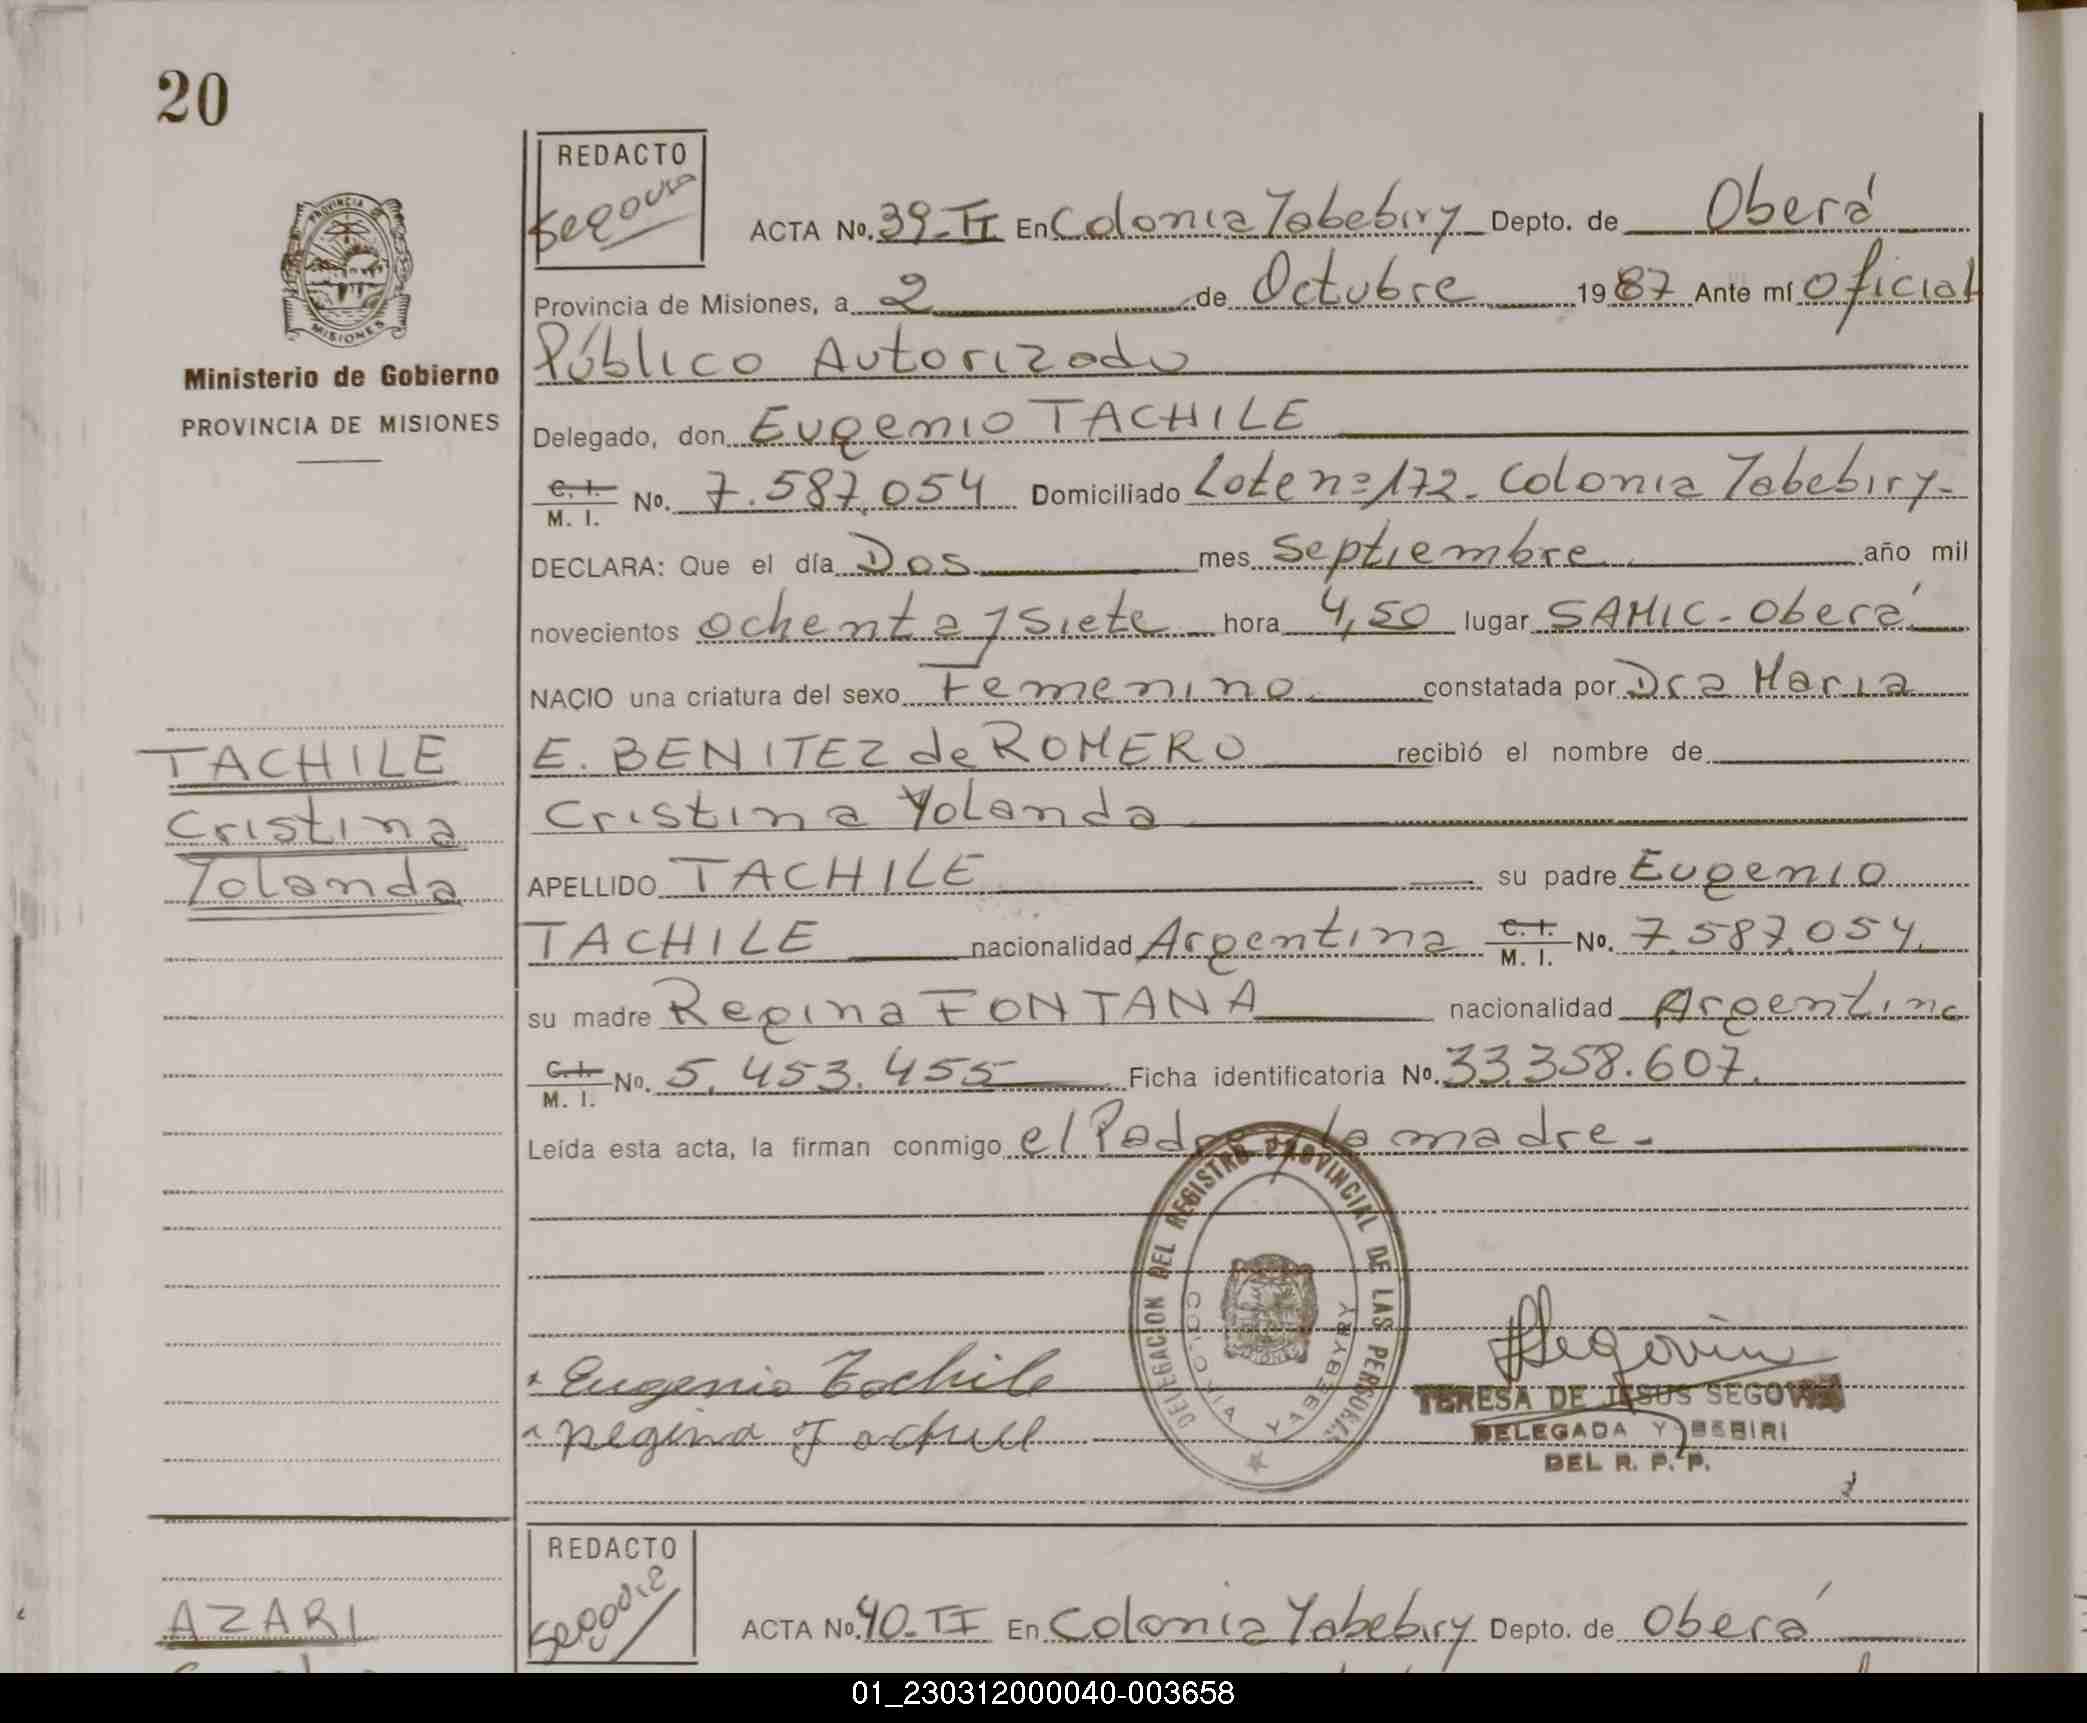 20
REDACTO
Segovia
ACTA No. 39-II En Colonia Yabebiry Depto. de Oberá
Provincia de Misiones, a 2 de Octubre 1987 Ante mí Oficial
Público Autorizado
PROVINCIA
MISIONES
Ministerio de Gobierno
PROVINCIA DE MISIONES
Delegado, don Eugenio TACHILE
C. I.
M. I. No. 7.587.054 Domiciliado Lote nº 172. Colonia Yabebiry-
DECLARA: Que el día Dos mes Septiembre año mil
novecientos ochenta y Siete hora 4,50 lugar SAMIC-Oberá
NACIO una criatura del sexo Femenino constatada por Dra Maria
E. BENITEZ de ROMERO recibió el nombre de
Cristina Yolanda
TACHILE
Cristina
Yolanda
APELLIDO TACHILE su padre Eugenio
TACHILE nacionalidad Argentina C. I.
M. I. No. 7.587.054.
su madre Regina FONTANA nacionalidad Argentina
C. I.
M. I. No. 5.453.455 Ficha identificatoria No. 33.358.607.
Leída esta acta, la firman conmigo el Padre y la madre-
DELEGACION DEL REGISTRO PROVINCIAL DE LAS PERSONAS
COLONIA YABEBYRY
Eugenio Tachile
Regina F Tachile
Segovia
TERESA DE JESUS SEGOVIA
DELEGADA YABEBIRI
DEL R. P. P.
REDACTO
Segovia
AZARI
ACTA No. 40-II En Colonia Yabebiry Depto. de Oberá
01_230312000040-003658